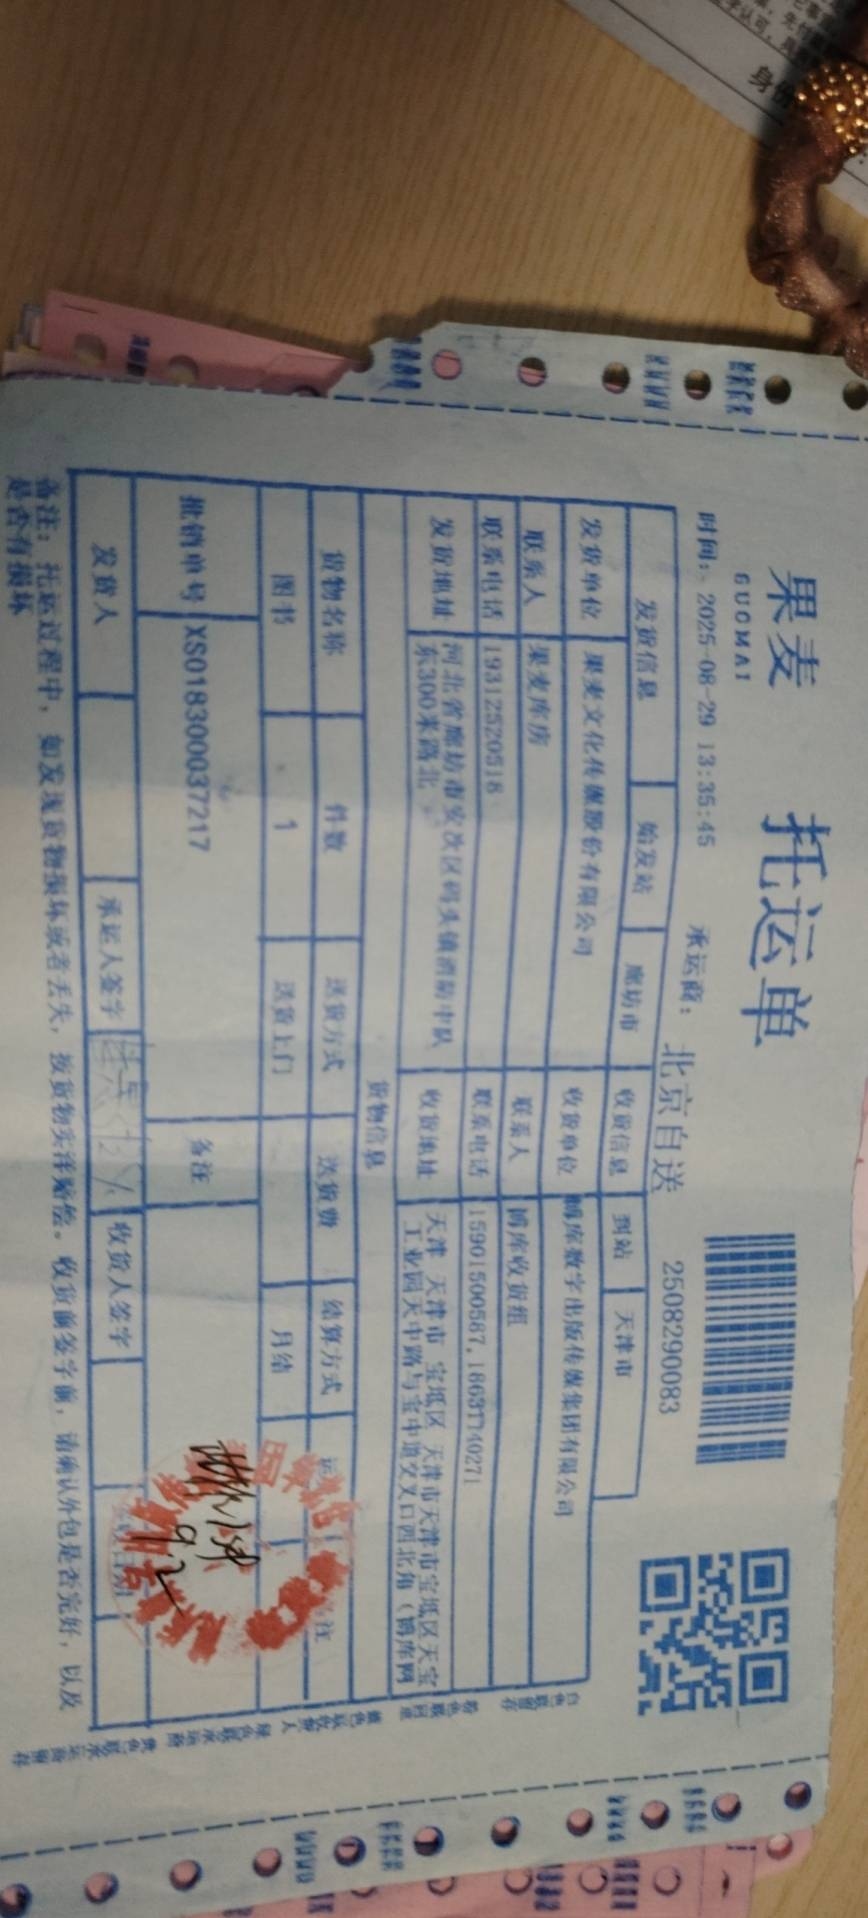 果麦
GUOMAI
托运单
时间: 2025-08-29 13:35:45
承运商: 北京自送
2508290083
发货信息 始发站 廊坊市 收货信息 到站 天津市
发货单位 果麦文化传媒股份有限公司 收货单位 博库数字出版传媒集团有限公司
联系人 果麦库房 联系人 博库收货组
联系电话 19312520518 联系电话 15901500587,18631740271
发货地址 河北省廊坊市安次区码头镇消防中队
东300米路北
收货地址 天津 天津市 宝坻区 天津市天津市宝坻区天宝
工业园天中路与宝中道交叉口西北角(博库网
货物信息
货物名称 件数 送货方式 送货费 结算方式
图书 1 送货上门 月结
批销单号 XS018300037217 备注
发货人 承运人签字 收货人签字
9.2
备注: 托运过程中, 如发现货物损坏或者丢失, 按货物实洋赔偿。收货前签字前, 请确认外包是否完好, 以及
是否有损坏
白色联留存
粉色联回单
黄色联收货人
绿色联承运商